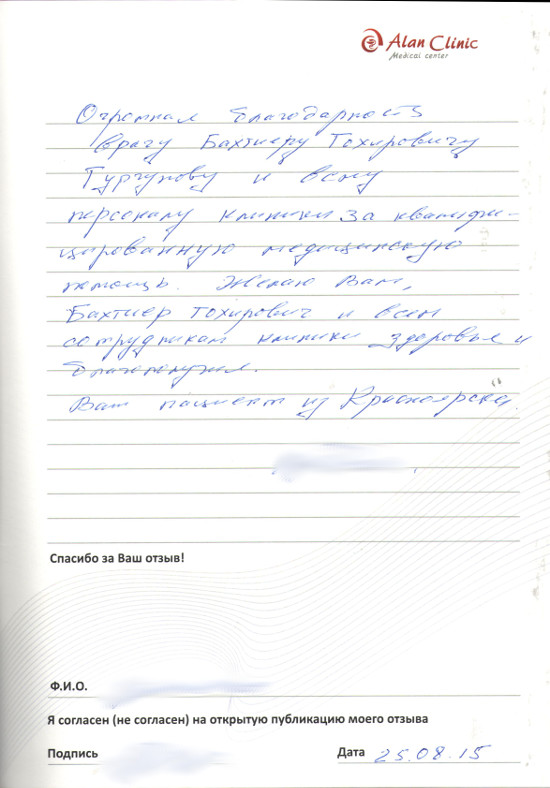 Alan Clinic
Medical center
Огромная благодарность
врачу Бахтиеру Тохировичу
Тургунову и всему
персоналу клиники за квалифи-
цированную медицинскую
помощь. Желаю Вам,
Бахтиер Тохирович и всем
сотрудникам клиники здоровья и
благополучия.
Ваш пациент из Красноярска
Спасибо за Ваш отзыв!
Ф.И.О.
Я согласен (не согласен) на открытую публикацию моего отзыва
Подпись Дата 25.08.15